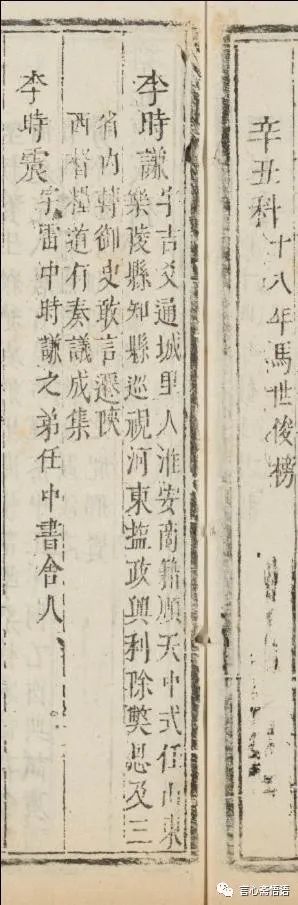 辛丑科十八年馬世俊榜
李時謙字吉爻通城里人淮安商籍順天中式任山東
樂陵縣知縣巡視河東鹽政興利除獘恩及三
省內轉御史敢言遷陝
西督糧道有奏議成集
李時震字雷中時謙之弟任中書舍人
言心斋悟语